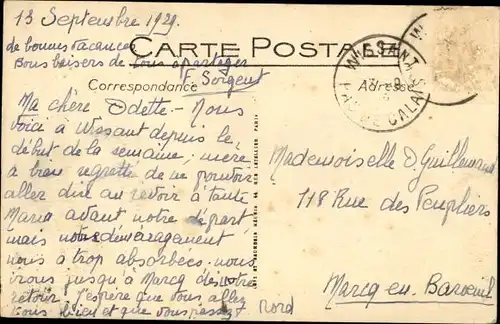 13 Septembre 1929.
de bonnes vacances
Bons baisers de tous à partager
F. Sorgent
CARTE POSTALE
Correspondance
Adresse
WISSANT
PAS DE CALAIS
Ma chère Odette - Nous
voici à Wissant depuis le
début de la semaine, mère
a bien regretté de ne pouvoir
aller dire au revoir à tante
Maria avant notre départ
mais notre déménagement
nous a trop absorbées - nous
irons jusqu'à Marcq dès notre
retour. J'espère que vous allez
tous bien et que vous passez
Mademoiselle O. Guillemaud
118 Rue des Peupliers
Marcq-en-Baroeuil
Nord